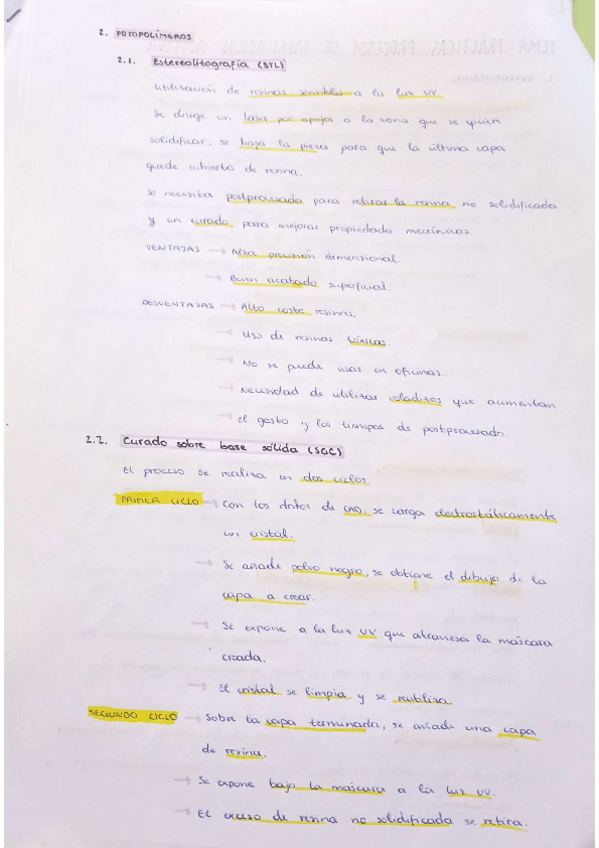 2. FOTOPOLÍMEROS
2.1. Estereolitografía (STL)
Utilización de resinas sensibles a la luz UV.
Se dirige un laser por espejos a la zona que se quiere
solidificar, se baja la pieza para que la última capa
quede cubierta de resina.
Se necesita postprocesado para retirar la resina no solidificada
y un curado para mejorar propiedades mecánicas.
VENTAJAS → Alta precisión dimensional
→ Buen acabado superficial.
DESVENTAJAS → Alto coste resinas.
→ Uso de resinas tóxicas.
→ No se puede usar en oficinas.
→ Necesidad de utilizar voladizos que aumentan
→ el gasto y los tiempos de postprocesado.
2.2. Curado sobre base sólida (SGC)
El proceso se realiza en dos ciclos
PRIMER CICLO → Con los datos de CAD, se carga electrostáticamente
un cristal.
→ Se añade polvo negro, se obtiene el dibujo de la
capa a crear.
→ Se expone a la luz UV que atraviesa la máscara
creada.
→ El cristal se limpia y se reutiliza.
SEGUNDO CICLO → Sobre la capa terminada, se añade una capa
de resina.
→ Se expone bajo la máscara a la luz UV.
→ El exceso de resina no solidificada se retira.